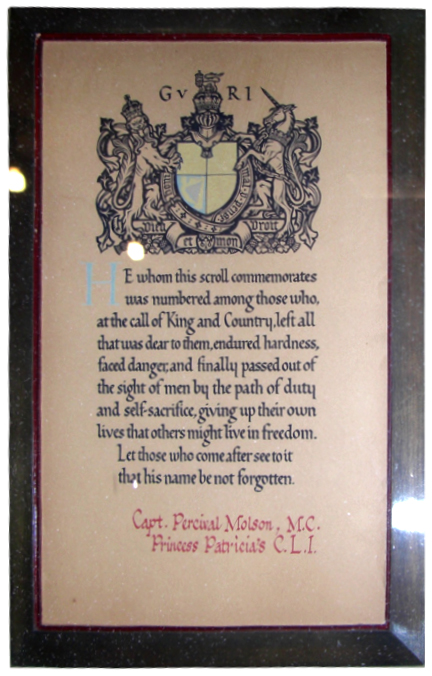 G V R I
Dieu et mon Droit
HE whom this scroll commemorates
was numbered among those who,
at the call of King and Country, left all
that was dear to them, endured hardness,
faced danger, and finally passed out of
the sight of men by the path of duty
and self-sacrifice, giving up their own
lives that others might live in freedom.
Let those who come after see to it
that his name be not forgotten.
Capt. Percival Molson, M.C.
Princess Patricia's C.L.I.